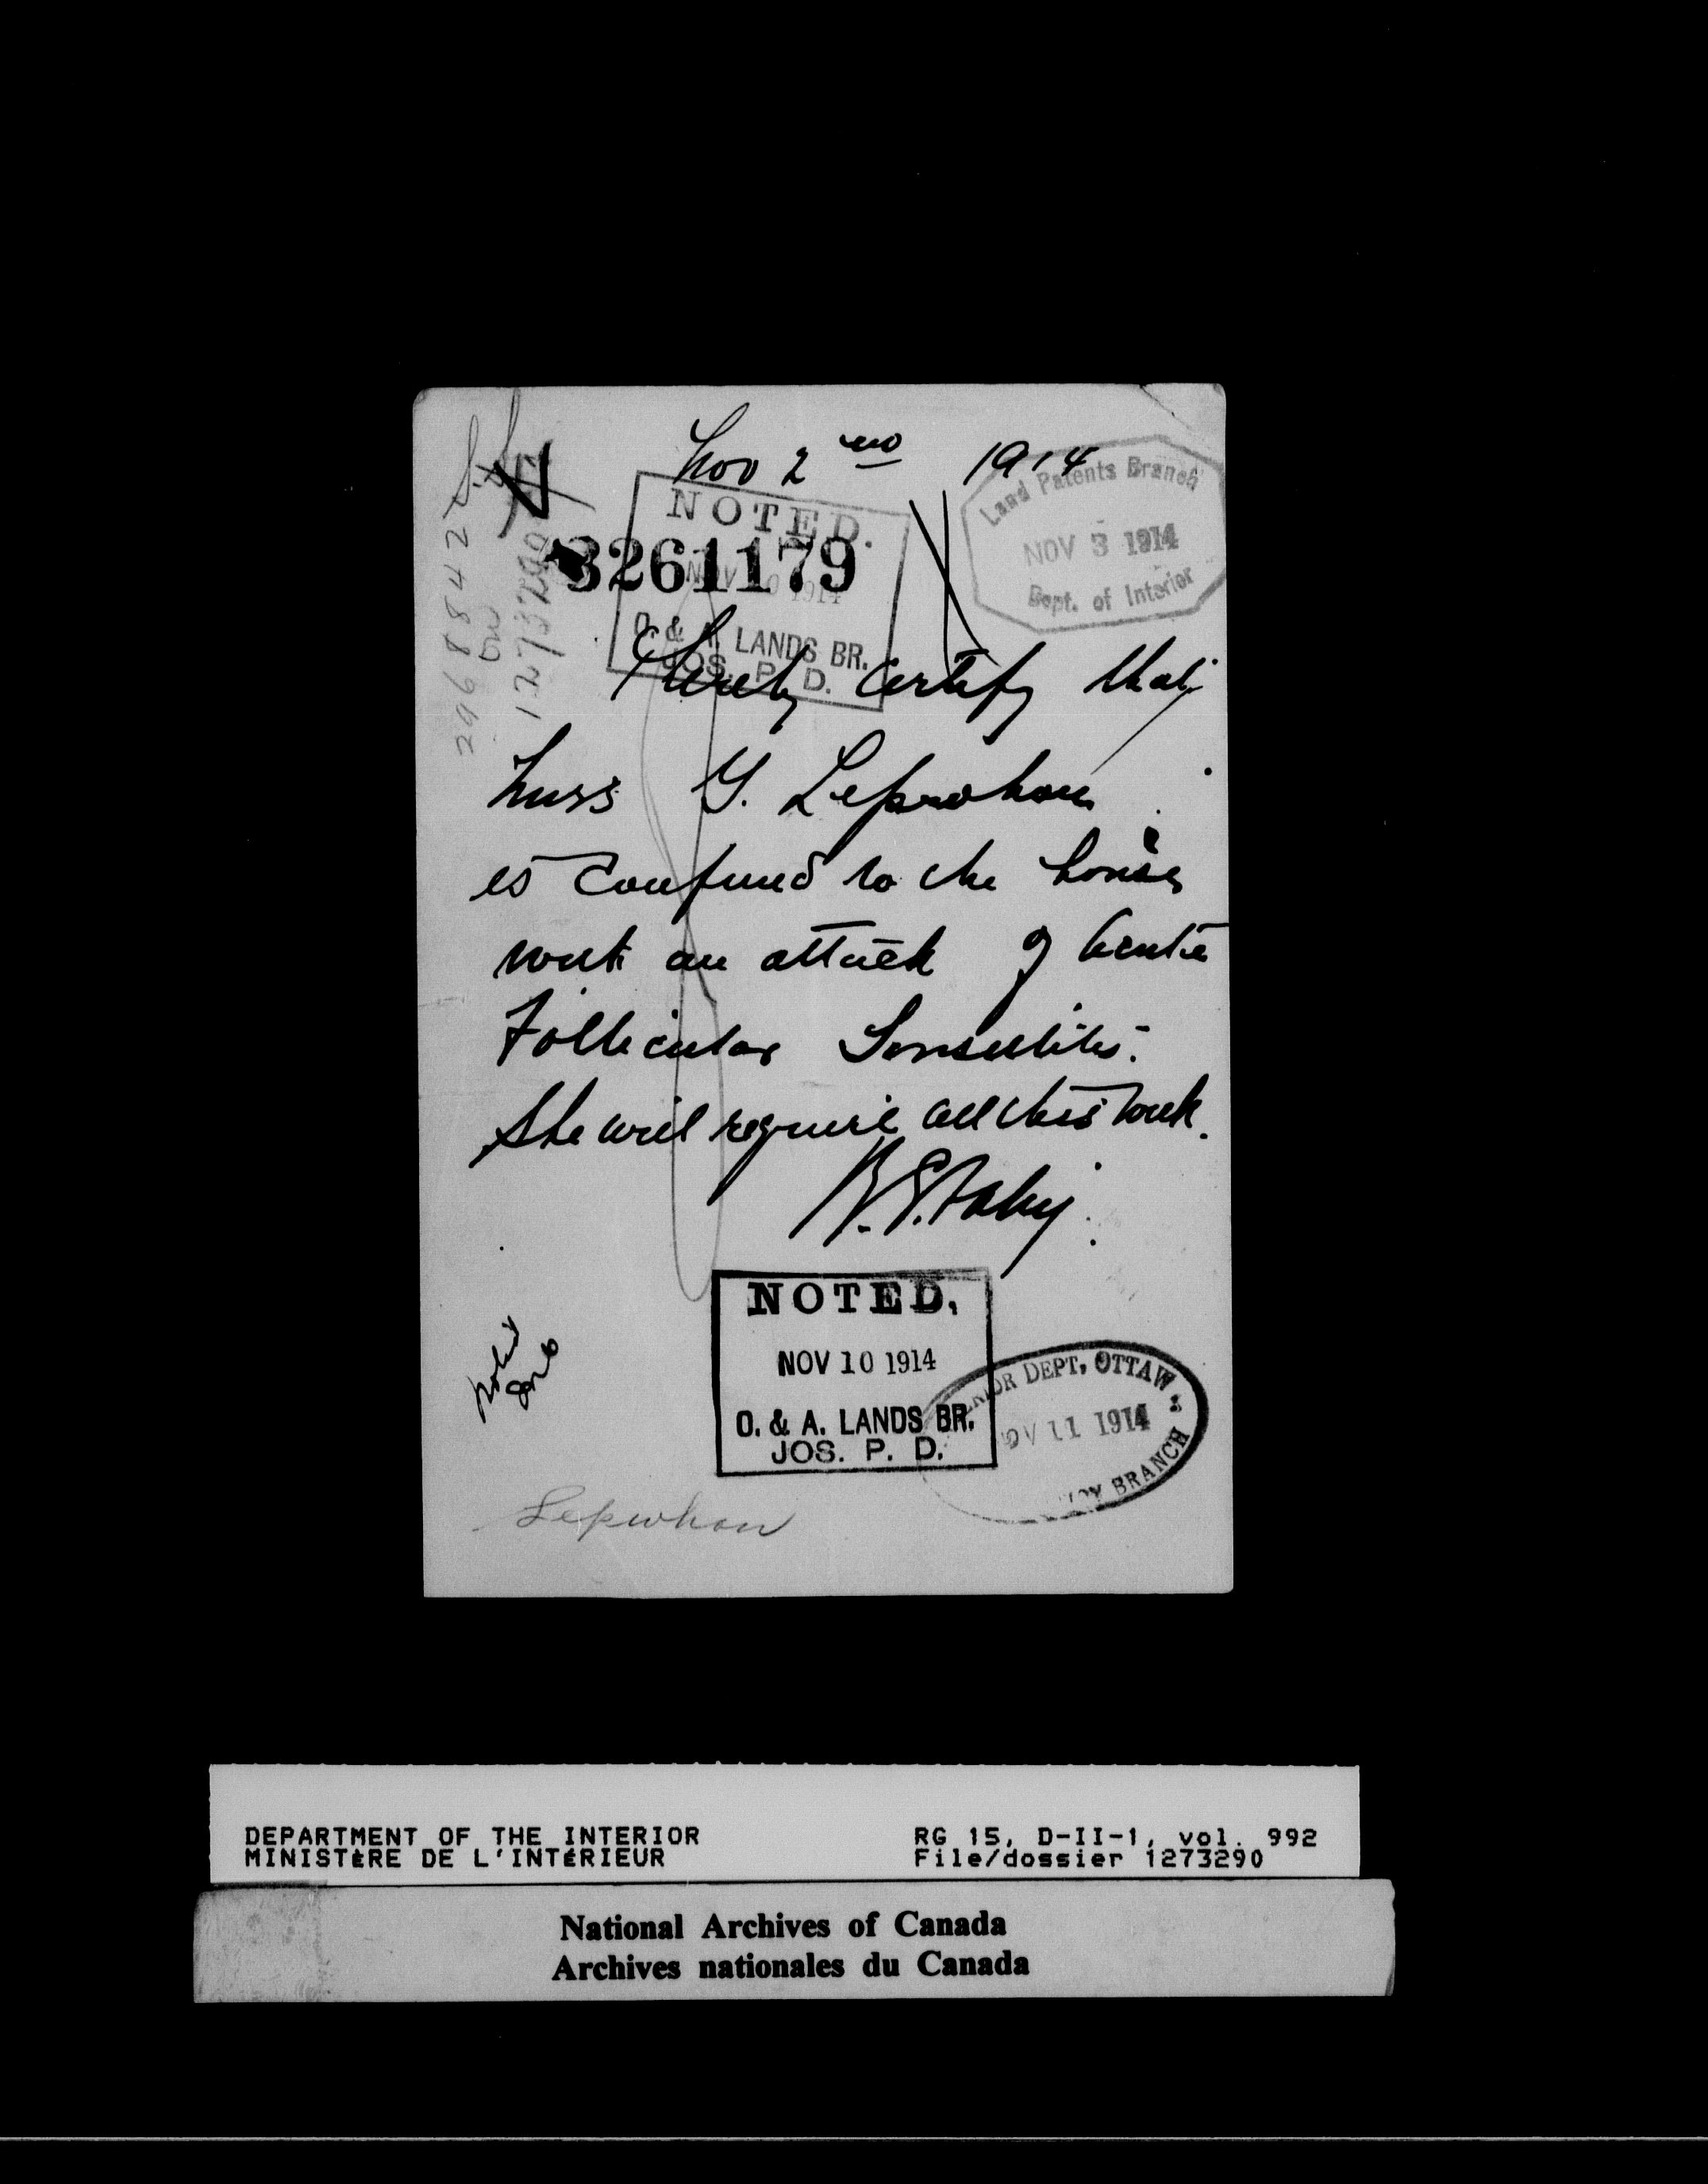 Nov 2nd 1914
NOTED.
3261179
NOV 10 1914
O. & A. LANDS BR.
JOS. P. D.
Land Patents Branch
NOV 3 1914
Dept. of Interior
2968842
1273290
I hereby certify that
Miss Y. Leprohon
is confined to the house
with an attack of Acute
Follicular Tonsillitis.
She will require all this week.
NOTED,
NOV 10 1914
O. & A. LANDS BR.
JOS. P. D.
RIOR DEPT, OTTAWA
OV 11 1914
BRANCH
Noted
Leprohon
DEPARTMENT OF THE INTERIOR
MINISTÈRE DE L'INTÉRIEUR
RG 15, D-II-1, vol. 992
File/dossier 1273290
National Archives of Canada
Archives nationales du Canada